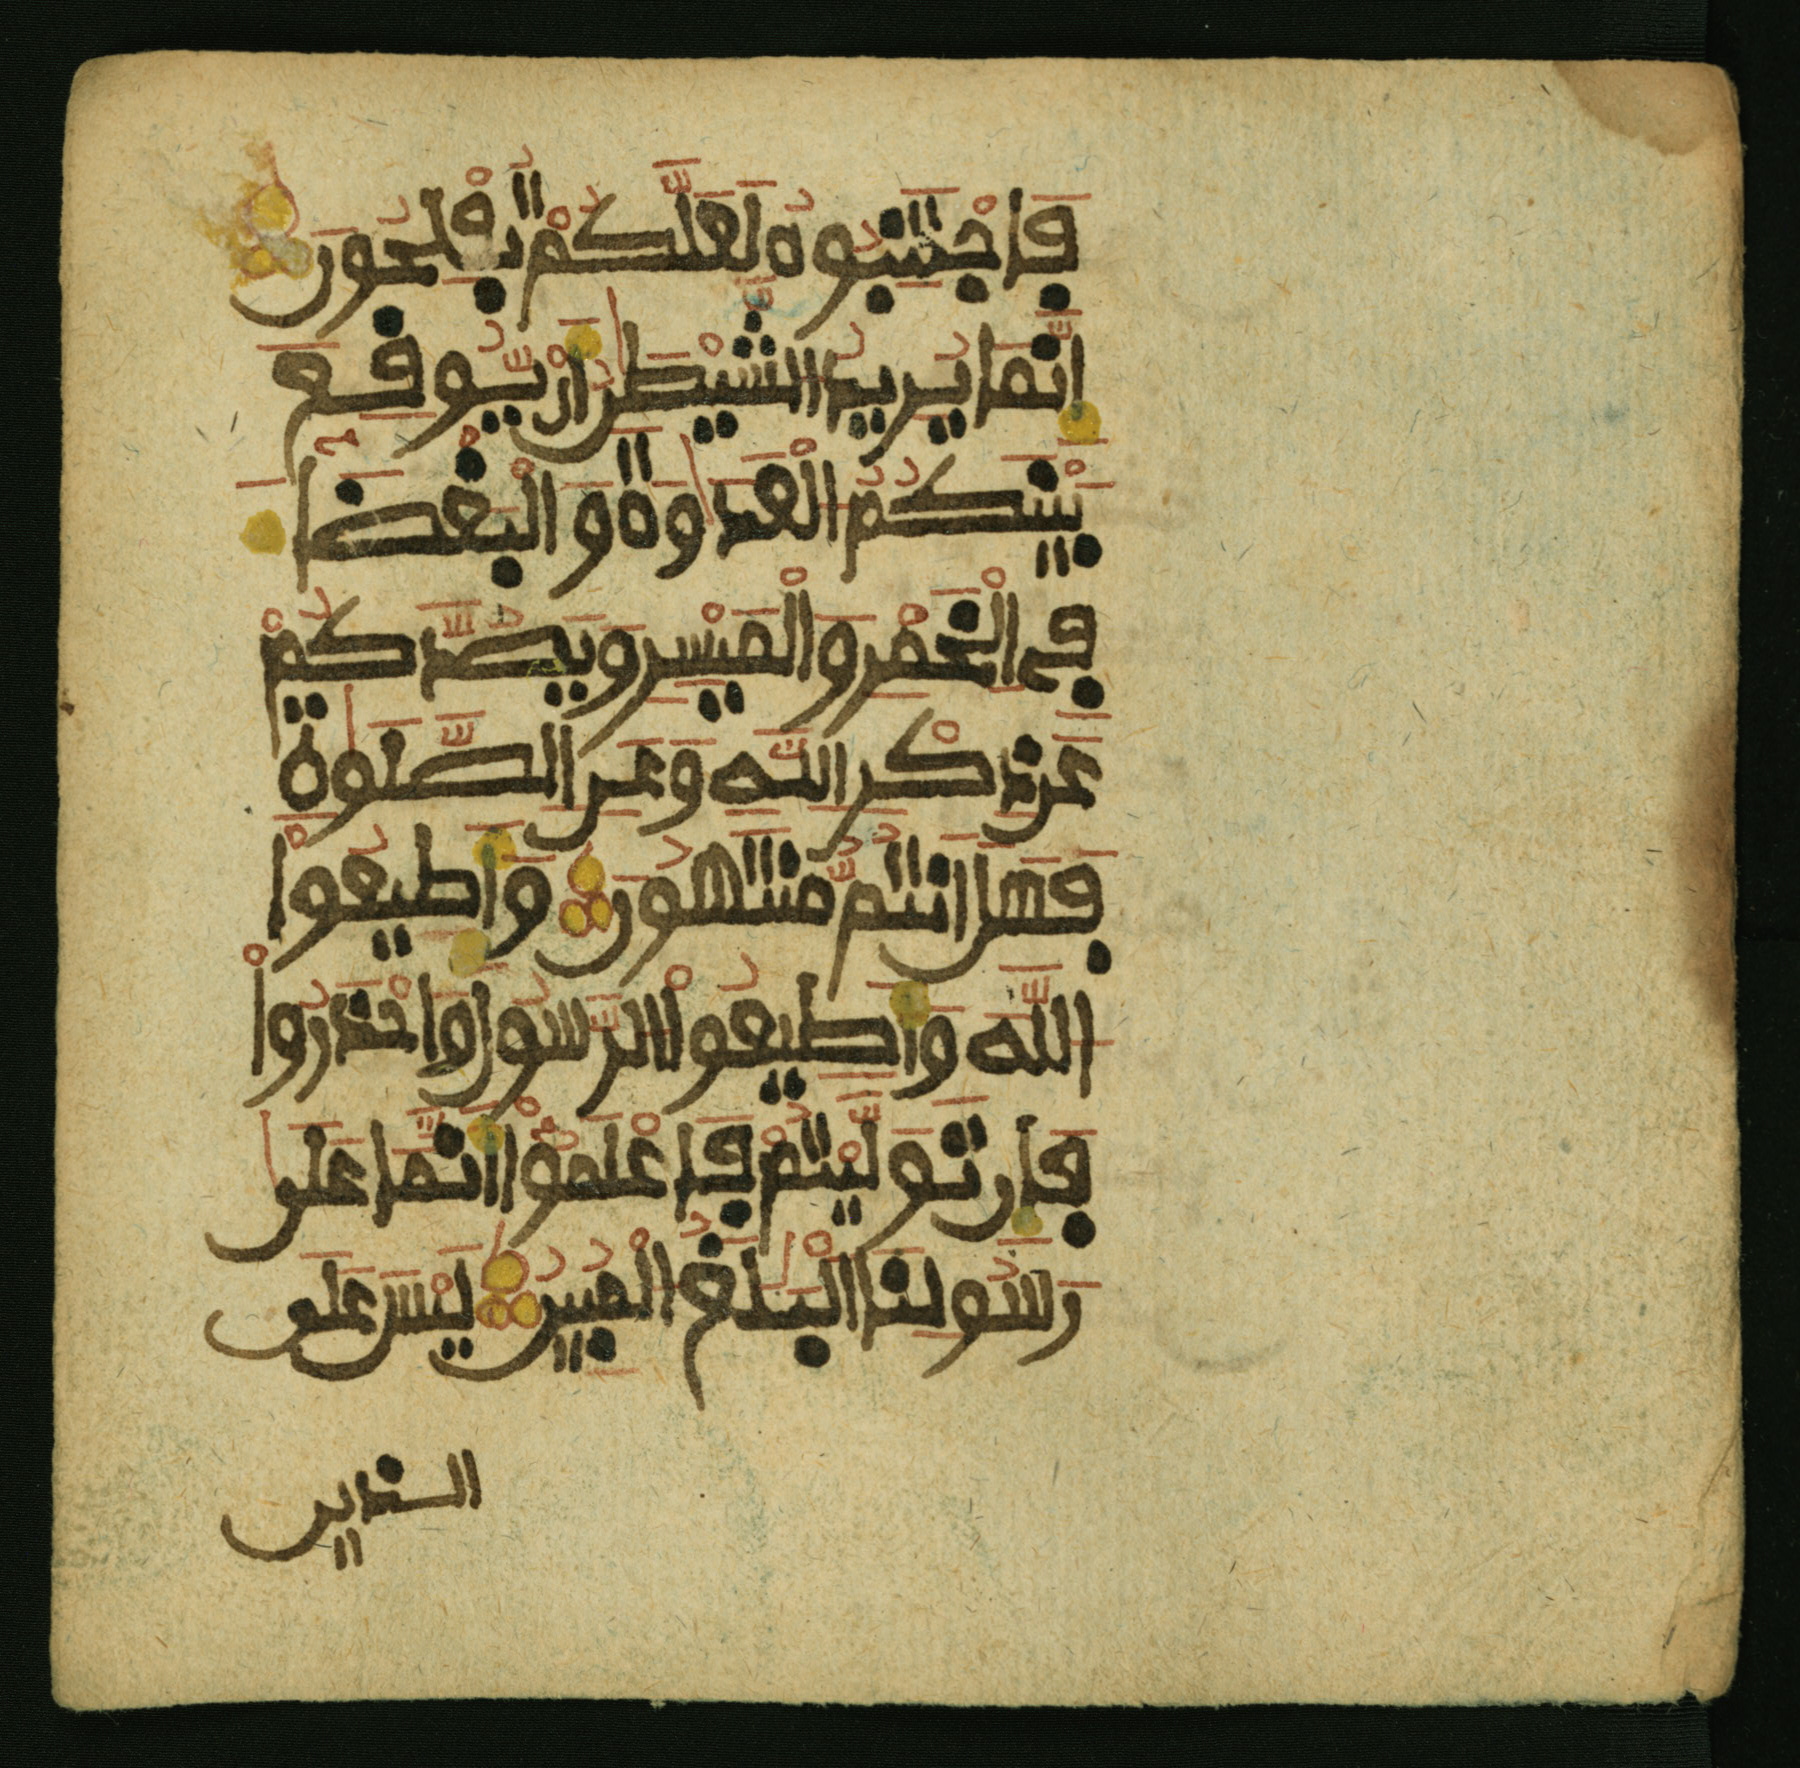 فَاجْتَنِبُوهُ لَعَلَّكُمْ تُفْلِحُونَ
اِنَّمَا يُرِيدُ الشَّيْطَٰنُ أَنْ يُّوقِعَ
بَيْنَكُمُ الْعَدَٰوَةَ وَالْبَغْضَا
فِے الْخَمْرِ وَالْمَيْسِرِ وَيَصُدَّكُمْ
عَن ذِكْرِ اللَّهِ وَعَنِ الصَّلَوٰةِ
فَهَلَ انتُم مُّنتَهُونَ وَأَطِيعُواْ
اللَّهَ وَأَطِيعُواْ الرَّسُولَ وَاحْذَرُواْ
فَإِن تَوَلَّيْتُمْ فَاعْلَمُواْ أَنَّمَا عَلَىٰ
رَسُولِنَا الْبَلَٰغُ الْمُبِينُ لَيْسَ عَلَى
الذين